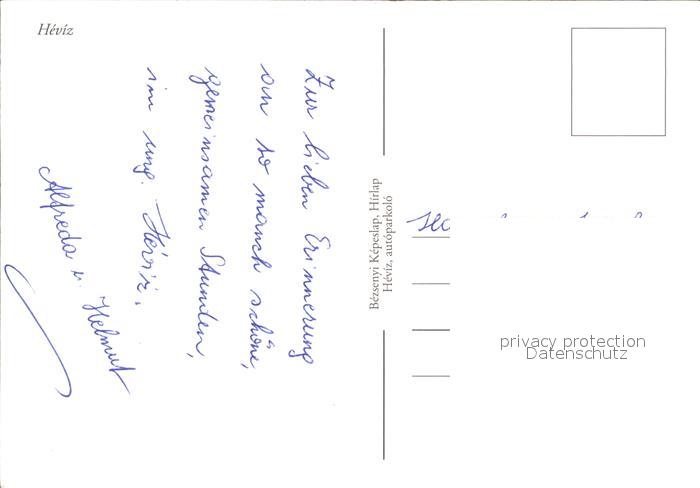 Hévíz
Zur lieben Erinnerung
an so manch schöne,
gemeinsamen Stunden,
im ung. Hévíz.
Alfreda u. Helmut
Bézsenyi Képeslap, Hírlap
Hévíz, autóparkoló
privacy protection
Datenschutz